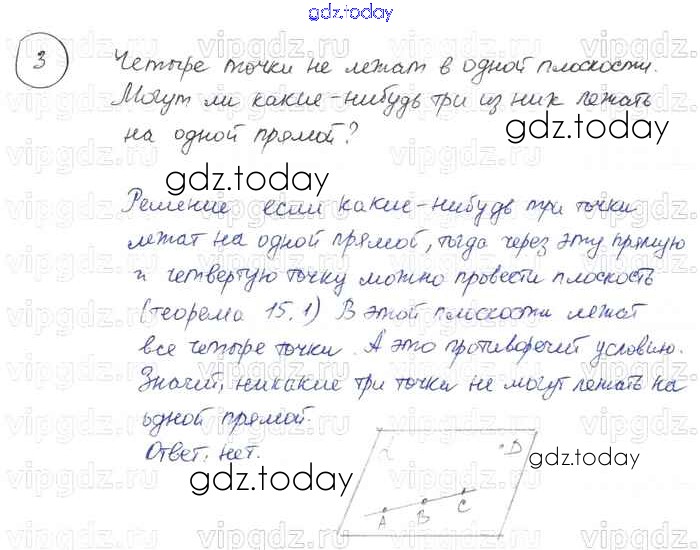 gdz.today
3
Четыре точки не лежат в одной плоскости.
Могут ли какие-нибудь три из них лежать
на одной прямой?
Решение если какие-нибудь три точки
лежат на одной прямой, тогда через эту прямую
и четвертую точку можно провести плоскость
(теорема 15.1) В этой плоскости лежат
все четыре точки. А это противоречит условию.
Значит, никакие три точки не могут лежать на
одной прямой.
Ответ: нет.
α
D
A B C
vipgdz.ru
gdz.today
gdz.today
gdz.today
gdz.today
gdz.today